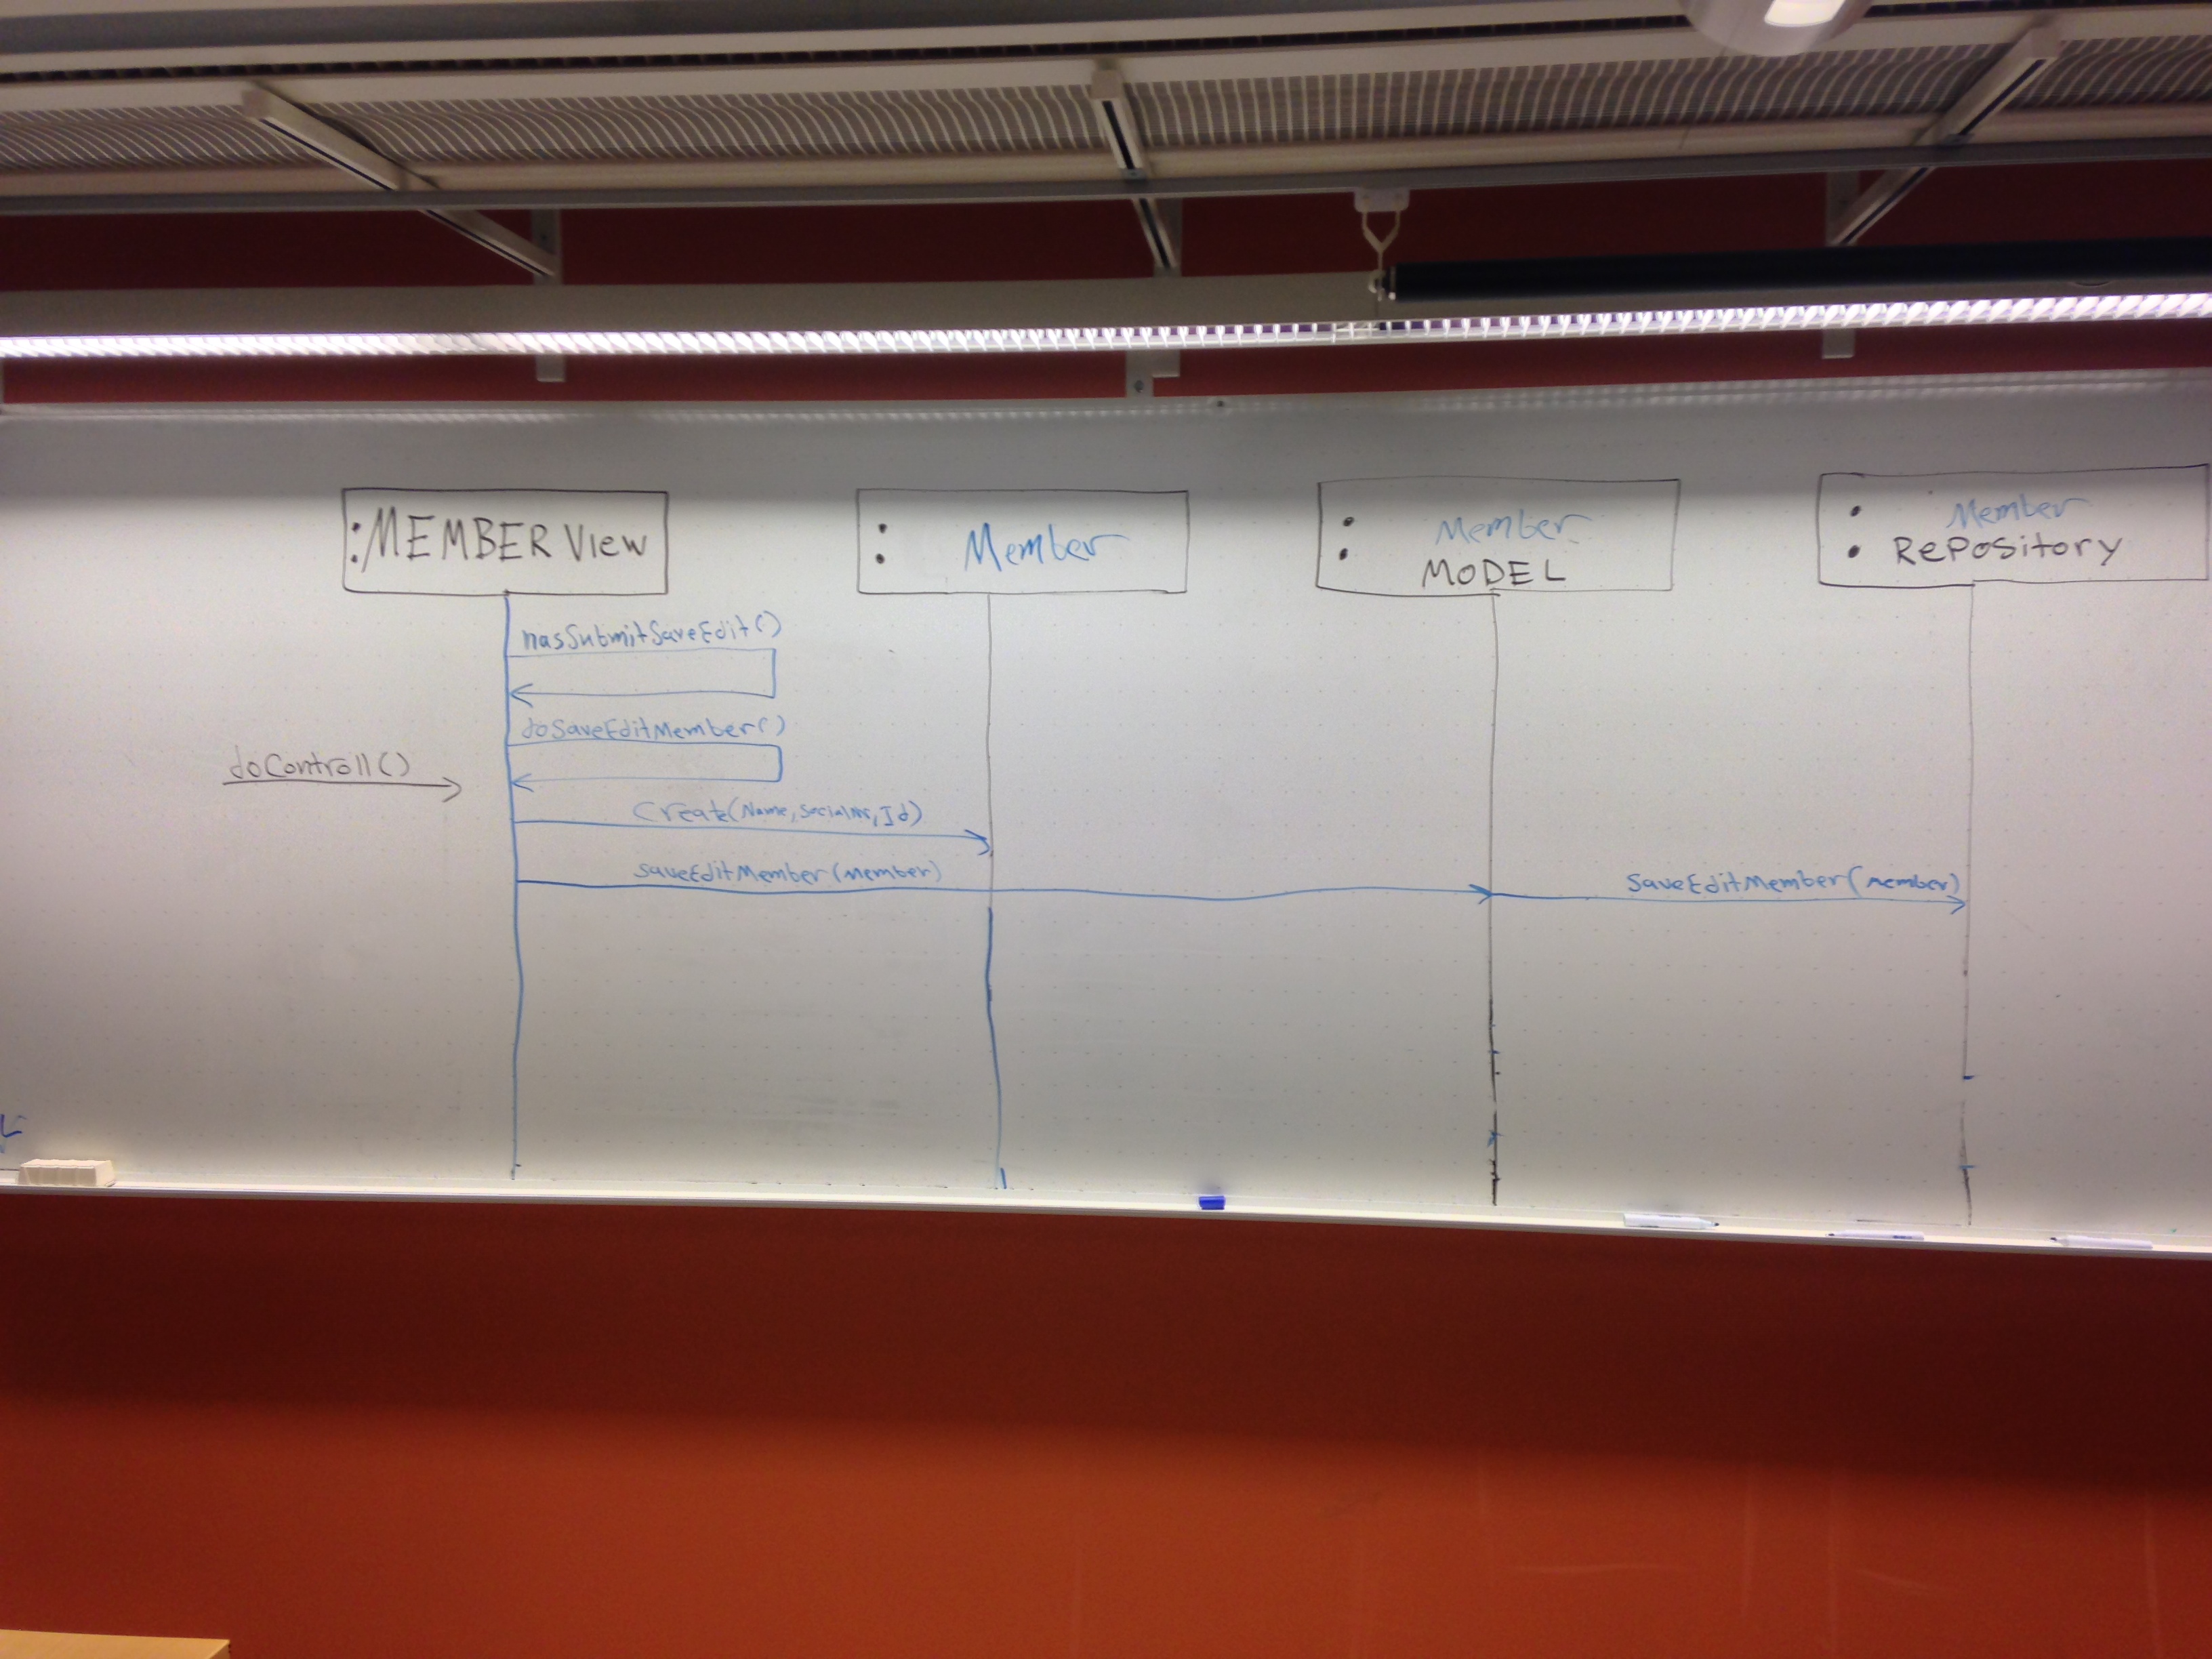 :MEMBER View
: Member
: Member
MODEL
: Member
RePository
hasSubmitSaveEdit()
doSaveEditMember()
doControll()
Create(Name, SocialNr, Id)
saveEditMember(member)
SaveEditMember(member)